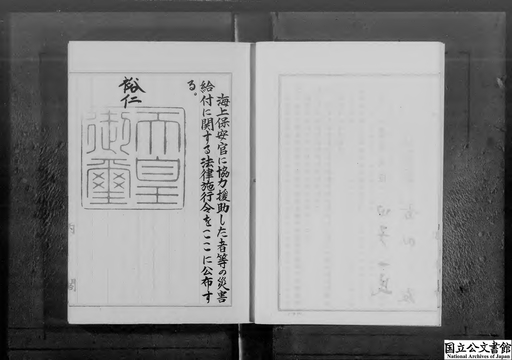 海上保安官に協力援助した者等の災害
給付に関する法律施行令をここに公布す
る。
裕仁
天皇
御璽
内閣
国立公文書館
National Archives of Japan